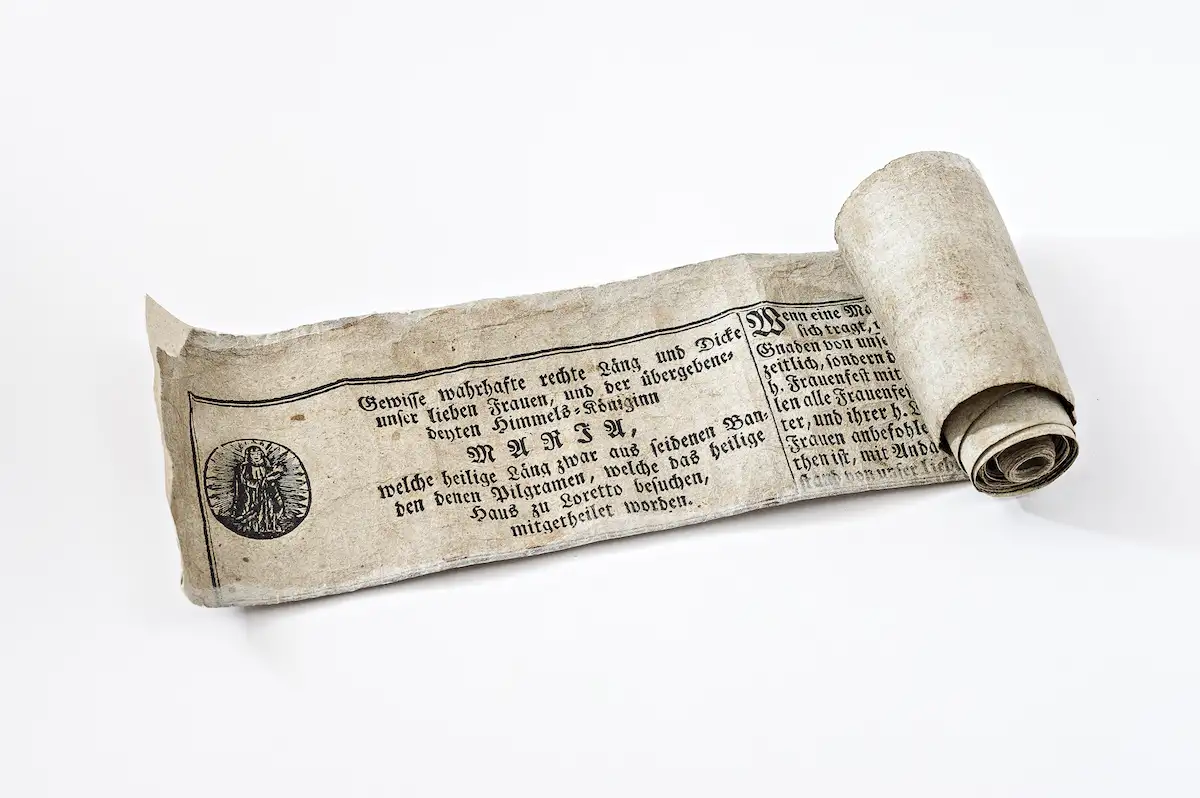 Gewisse wahrhafte rechte Läng und Dicke
unser lieben Frauen, und der übergebene-
deyten Himmels-Königinn
MARIA,
welche heilige Läng zwar aus seidenen Ban-
den denen Pilgramen, welche das heilige
Haus zu Loretto besuchen,
mitgetheilet worden.
Wenn eine
sich tragt,
Gnaden von
zeitlich, sondern
h. Frauenfest mit
len alle
ter, und ihrer h.
Frauen
then ist, mit
von unser